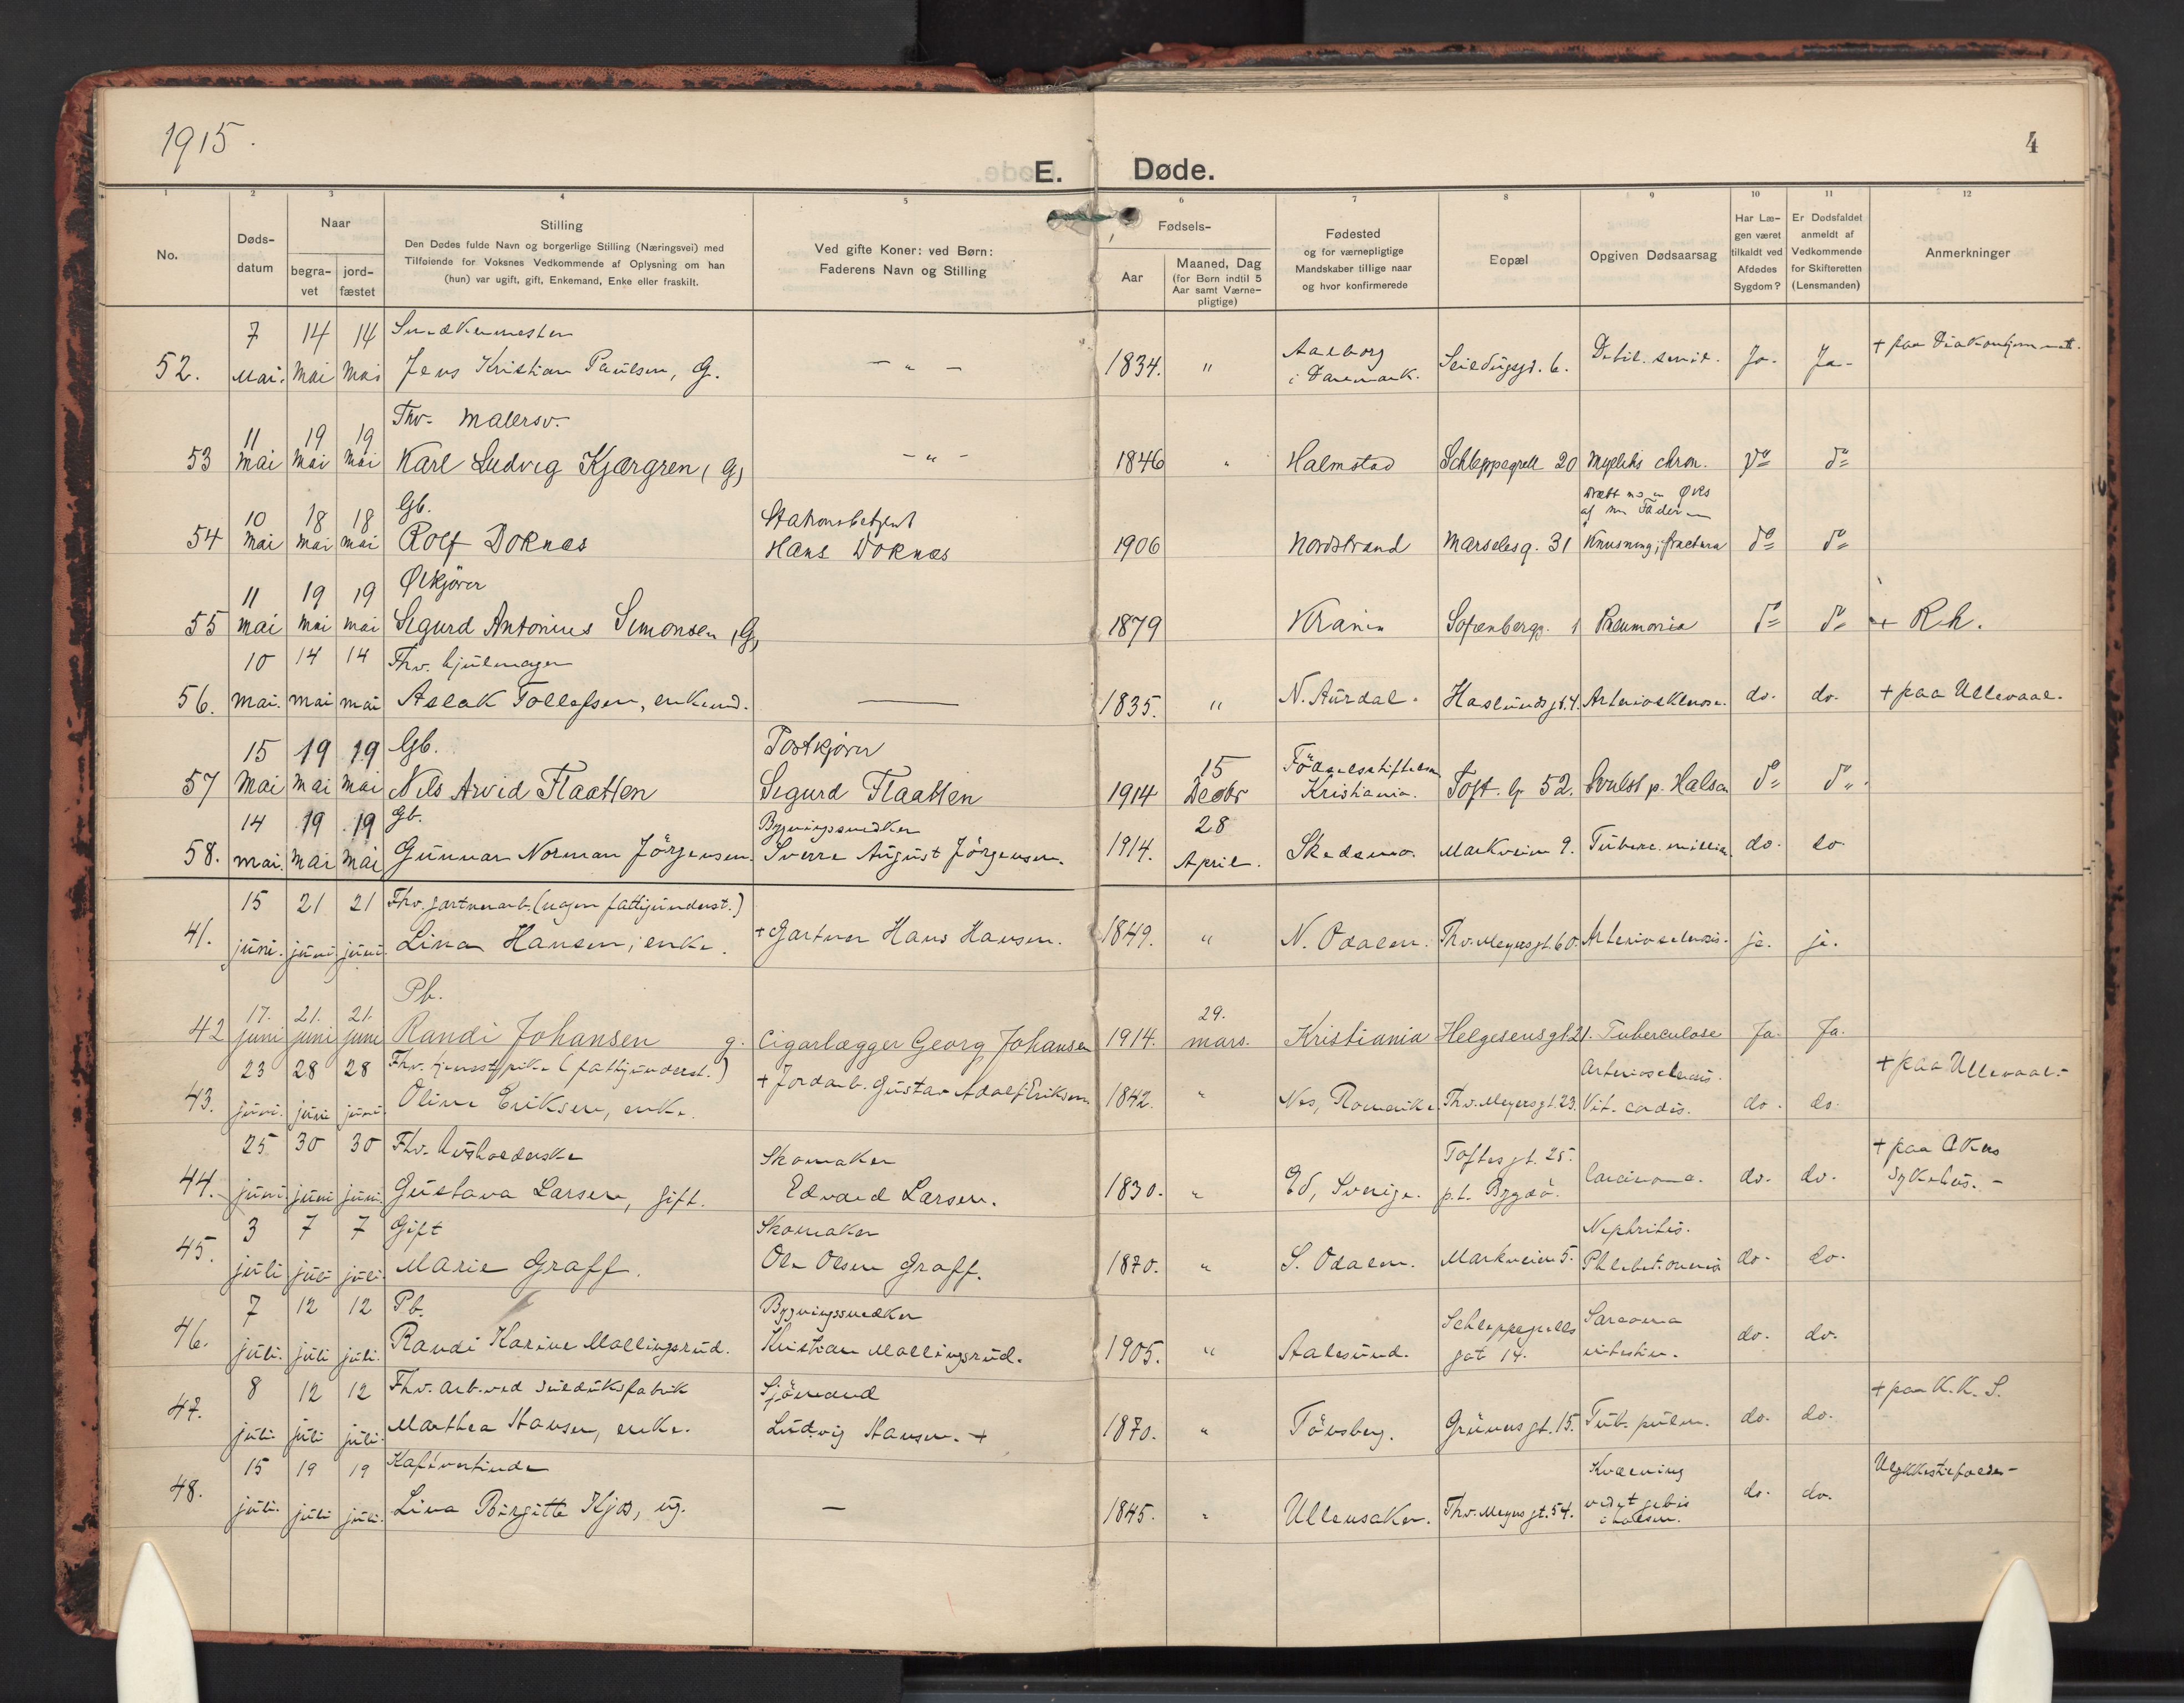 1915.
4
E. Døde.
1 2 3 4 5 6 7 8 9 10 11 12
No.
Døds-
datum
Naar
begra-
vet
jord-
fæstet
Stilling
Den Dødes fulde Navn og borgerlige Stilling (Næringsvei) med
Tilføiende for Voksnes Vedkommende af Oplysning om han
(hun) var ugift, gift, Enkemand, Enke eller fraskilt.
Ved gifte Koner: ved Børn:
Faderens Navn og Stilling
Fødsels-
Aar
Maaned, Dag
(for Børn indtil 5
Aar samt Værne-
pligtige)
Fødested
og for værnepligtige
Mandskaber tillige naar
og hvor konfirmerede
Bopæl
Opgiven Dødsaarsag
Har Læ-
gen været
tilkaldt ved
Afdødes
Sygdom?
Er Dødsfaldet
anmeldt af
Vedkommende
for Skifteretten
(Lensmanden)
Anmerkninger
7 14 14 Snedkermester Aalborg + paa Diakonhjemmet.
52. Mai. Mai Mai Jens Kristian Paulsen, G. - " - 1834. " i Danmark. 6. Debil. senil. Ja. Ja-
11 19 19 Fhv. Malersv.
53 Mai Mai Mai Karl Ludvig Kjærgren, (G) - " - 1846 " Halmstad Schleppegrell 20 Myelitis chron. do do
10 18 18 Gb. Stationsbetjent Dræbt Øks
af Faderen
54 Mai Mai Mai Rolf Doknæs Hans Doknæs 1906 Nordstrand Marselesg. 31 Knusning; fractura do do
11 19 19 Ølkjører
55 Mai Mai Mai Sigurd Antonius Simonsen, (G) 1879 Krania Sofienbergg. 1 Pneumonia do do + R.h.
10 14 14 Fhv. hjulmager
56. mai. mai mai Aslak Tollefsen, enkemd. — 1835. " N. Aurdal. Haslundsgt. 4. Arteriosklerose. do. do. + paa Ullevaal.
15 19 19 Gb. Postkjører 15 Födselsstiftelsen
57 Mai Mai Mai Nils Arvid Flaatten Sigurd Flaatten 1914 Decbr Kristiania. Toft. g. 52. Svulst p. Halsen do do
14 19 19 Gb. Bygningssnedker 28
58. mai. mai mai Gunnar Norman Jörgensen. Sverre August Jörgensen. 1914. April. Skedsmo. Markveien 9. Tuberc. milliar. do. do.
15 21 21 Fhv. gartnerarb. (ingen fattigunderst.)
41. juni. juni juni. Lina Hansen, enke. + Gartner Hans Hansen. 1849. " N. Odalen. Thv. Meyersgt. 60. Arteriosclerosis. ja. ja.
Pb.
17. 21. 21. 29.
42 juni juni juni Randi Johansen g. Cigarlægger Georg Johansen 1914. mars. Kristiania Helgesensgt 21. Tuberculose Ja. Ja.
23 28 28 Fhv. tjenestpike (fattigunderst.) Arteriosclerosis. + paa Ullevaal.-
43. juni. juni juni. Oline Eriksen, enke. + Jordarb. Gustav Adolf Eriksen. 1842. " Nes, Romerike. Thv. Meyersgt. 23. Vit. cordis. do. do.
25 30 30 Fhv. husholderske Skomaker Toftes gt. 25. + paa Akers
44. juni. juni juni. Gustava Larsen, gift. Edvard Larsen. 1830. " Ed, Sverige. p.t. Bygdö. Carcinoma. do. do. Sykehus. -
3 7 7 Gift Skomaker Nephritis.
45. juli juli juli. Marie Graff. Ole Olsen Graff. 1870. " S. Odalen. Markveien 5. do. do.
7 12 12 Pb. Bygningssnedker Schleppegrells Sarcoma
46. juli. juli juli. Randi Karine Mallingsrud. Kristian Mallingsrud. 1905. " Aalesund. gat 14. intestin. do. do.
8 12 12 Fhv. arb. ved seilduksfabrik Sjömand + paa K. K. S.
47. juli. juli juli. Marthea Hansen, enke. Ludvig Hansen. + 1870. " Tönsberg. Grünersgt. 15. Tub. pulm. do. do.
15 19 19 Kafévertinde Kvælning Ulykkestilfælde-
48. juli. juli juli. Lina Birgitte Kjos, ug. — 1845. " Ullensaker. Thv. Meyersgt. 54. ved et gebis do. do.
i halsen.